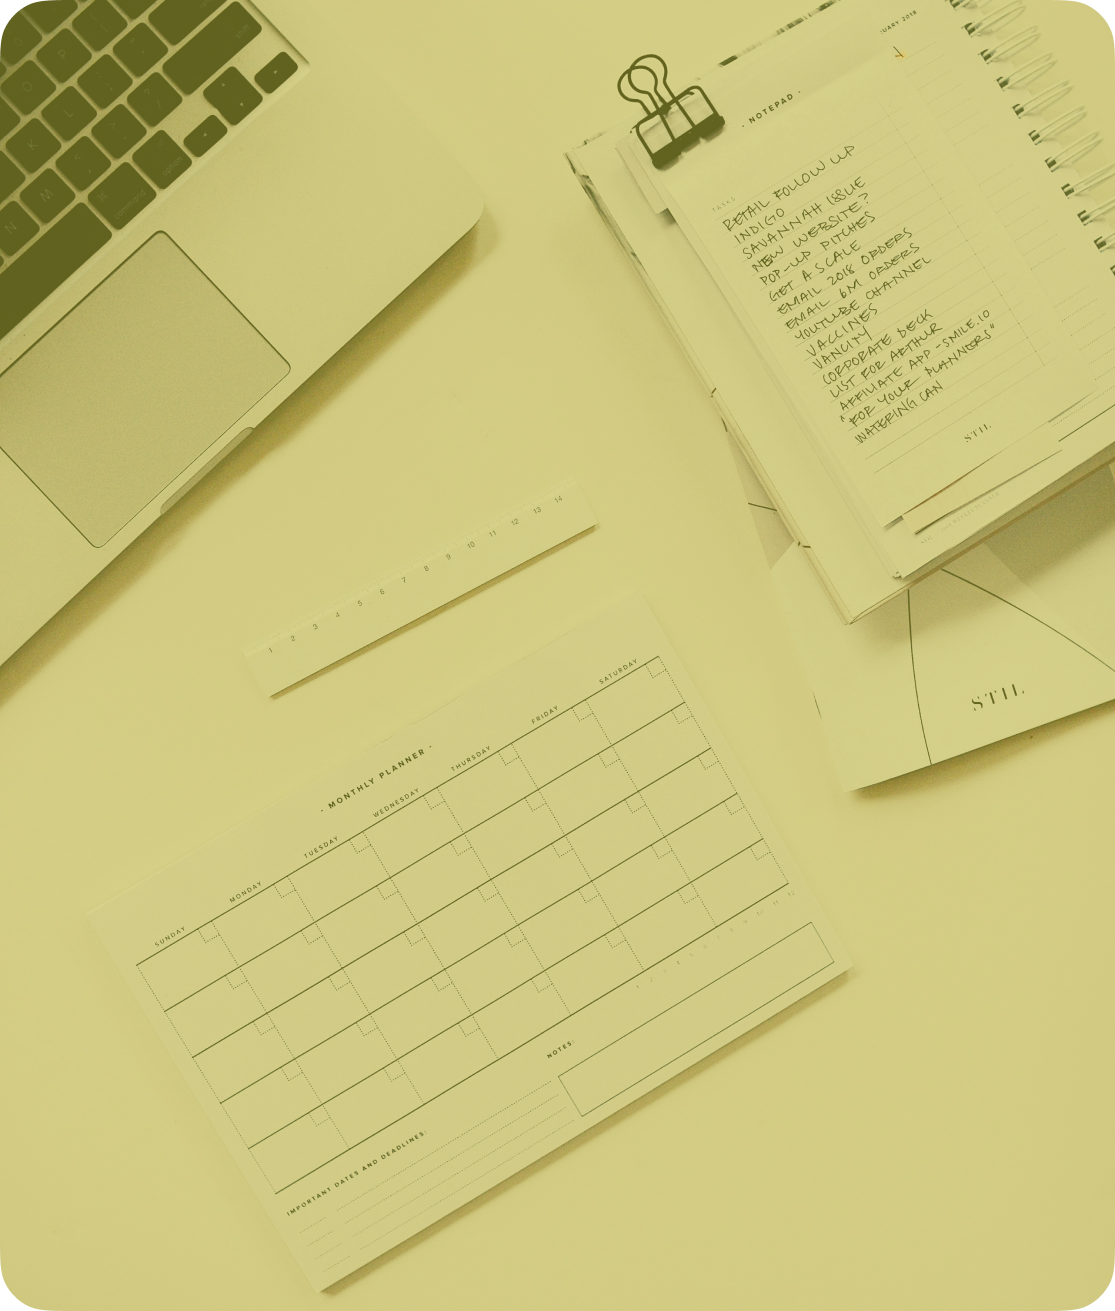 UARY 2018
- NOTEPAD -
TASKS
RETAIL FOLLOW UP
INDIGO
SAVANNAH ISSUE
NEW WEBSITE?
POP-UP PITCHES
GET A SCALE
EMAIL 2018 ORDERS
EMAIL 6M ORDERS
YOUTUBE CHANNEL
VACCINES
VANCITY
CORPORATE DECK
LIST FOR ARTHUR
AFFILIATE APP - SMILE.IO
"FOR YOUR PLANNERS"
WATERING CAN
STIL
STIL
O P
K L
N M
command option
shift
1 2 3 4 5 6 7 8 9 10 11 12 13 14
- MONTHLY PLANNER -
SUNDAY MONDAY TUESDAY WEDNESDAY THURSDAY FRIDAY SATURDAY
NOTES:
IMPORTANT DATES AND DEADLINES: